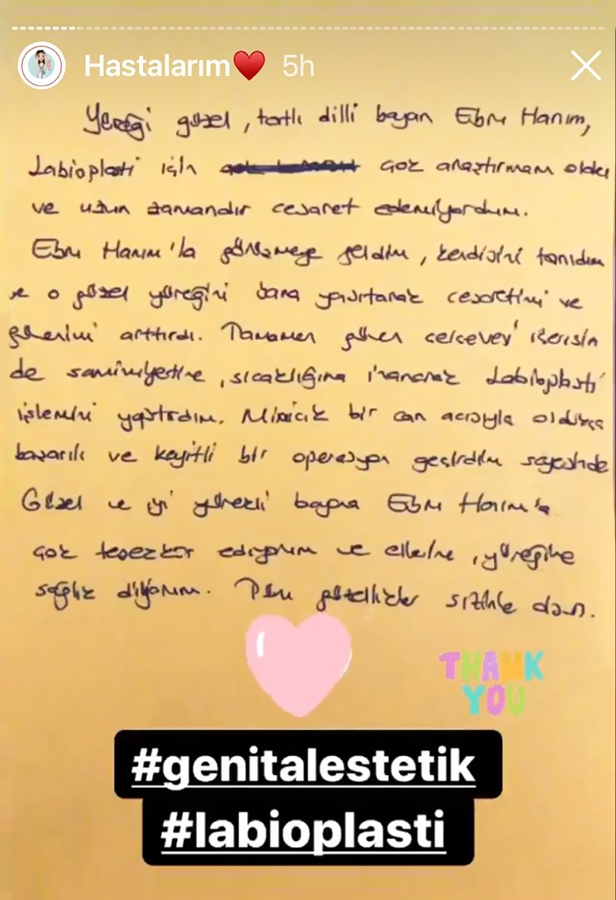 Hastalarım 5h
Yüreği güzel, tatlı dilli bayan Ebru Hanım,
Labioplasti için çok araştırmam oldu
ve uzun zamandır cesaret edemiyordum.
Ebru Hanım'la görüşmeye geldim, kendisini tanıdım
ve o güzel yüreğini bana yansıtarak cesaretimi ve
güvenimi arttırdı. Tamamen güven çerçevesi içerisin
de samimiyetine, sıcaklığına inanarak Labioplasti
işlemini yaptırdım. Minicik bir can acısıyla oldukça
başarılı ve keyifli bir operasyon geçirdim sayesinde
Güzel ve iyi yürekli bayan Ebru Hanım'a
çok teşekkür ediyorum ve ellerine, yüreğine
sağlık diliyorum. güzellikler sizinle olsun.
THANK
YOU
#genitalestetik
#labioplasti